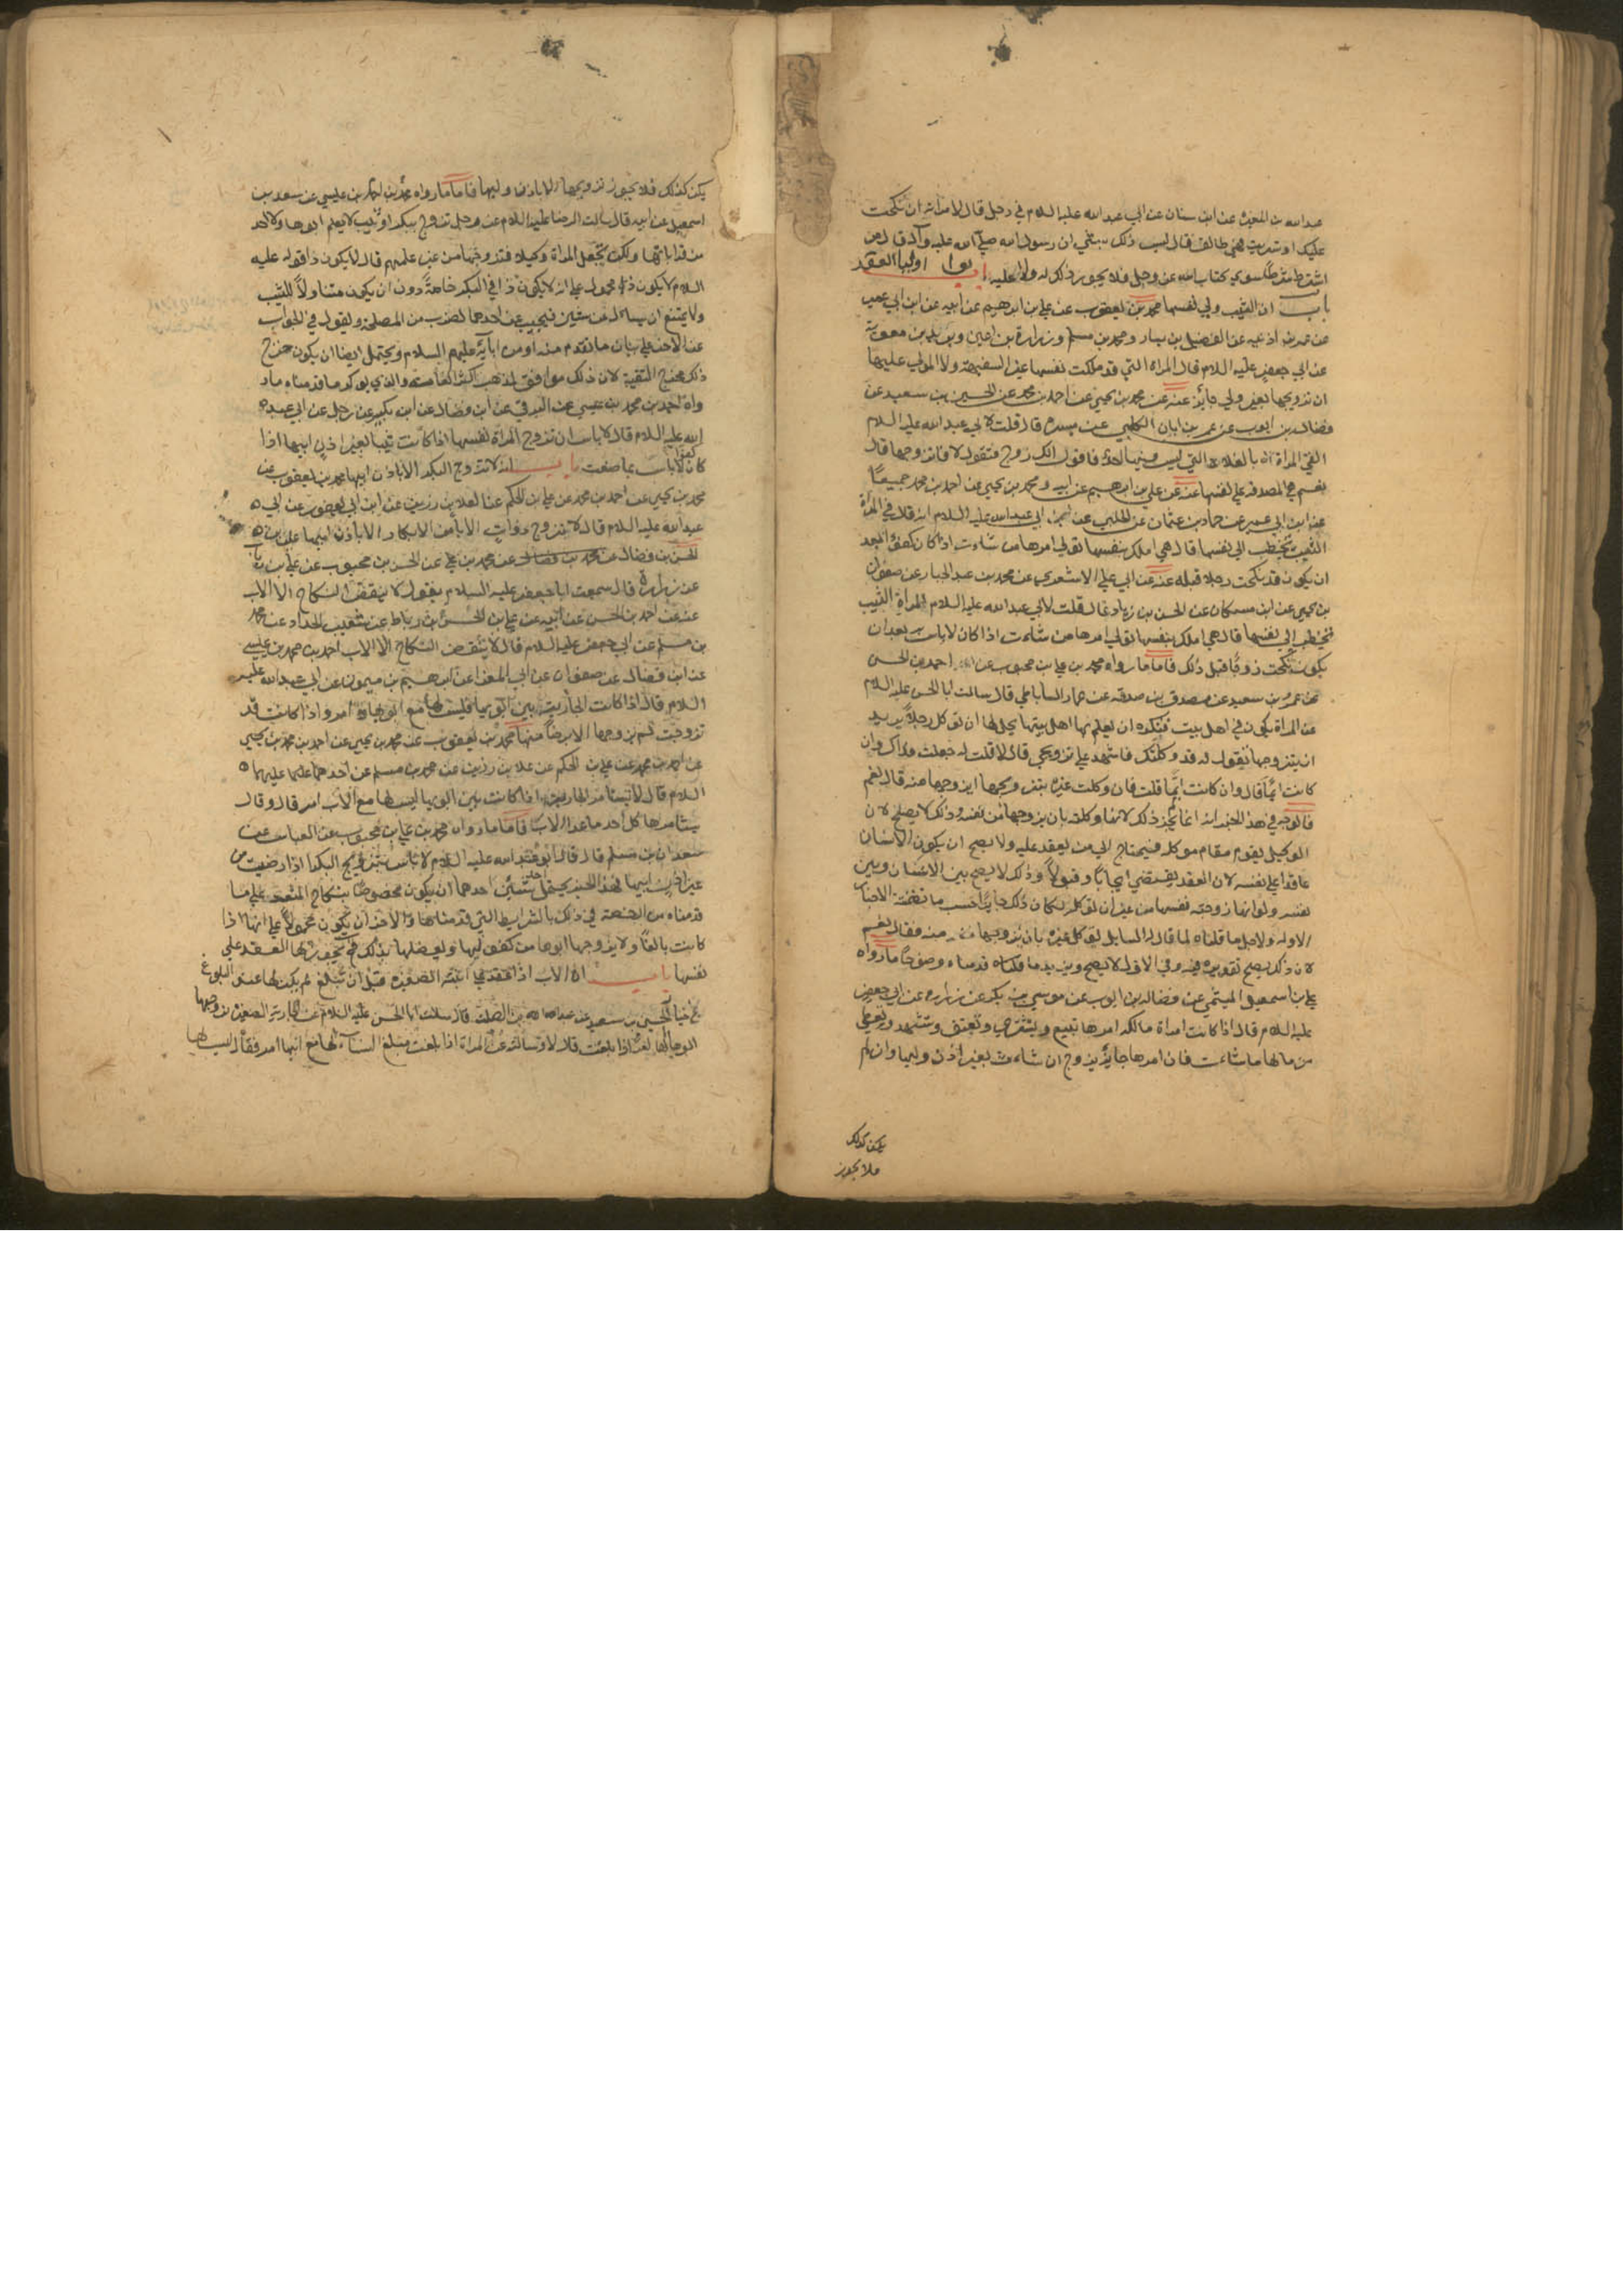 عبدالله بن المغيرة عن ابن سنان عن ابي عبد الله عليه السلام في رجل قال لامراته ان نكحت
عليك او تسريت فهي طالق قال ليس ذلك بشئ ان رسول الله صلى الله عليه وآله قال من
اشترط شرطا سوى كتاب الله عز وجل فلا يجوز ذلك له ولا عليه ابواب اولياء العقد
باب ان الثيب ولي نفسها محمد بن يعقوب عن علي بن ابرهيم عن ابيه عن ابن ابي عمير
عن عمر بن اذينه عن الفضيل بن يسار ومحمد بن مسلم وزرارة بن اعين وبريد بن معوية
عن ابي جعفر عليه السلام قال المراة التي قد ملكت نفسها غير السفيهة ولا المولى عليها
ان تزويجها بغير ولي جايز عنه عن محمد بن يحيى عن احمد بن محمد عن الحسين بن سعيد عن
فضالة بن ايوب عن عمر بن ابان الكلبي عن ميسرة قال قلت لابي عبد الله عليه السلام
القى المراة بالفلاة التي ليس فيها احد فاقول الك زوج فتقول لا فاتزوجها قال
نعم هي المصدقة على نفسها عنه عن علي بن ابرهيم عن ابيه ومحمد بن يحيى عن احمد بن محمد جميعا
عن ابن ابي عمير عن حماد بن عثمان عن الحلبي عن ابي عبد الله عليه السلام انه قال في المراة
الثيب تخطب الى نفسها قال هي املك بنفسها تولي امرها من شاءت اذا كان كفوا بعد
ان يكون قد نكحت رجلا قبله عنه عن ابي علي الاشعري عن محمد بن عبد الجبار عن صفوان
بن يحيى عن ابن مسكان عن الحسن بن زياد قال قلت لابي عبد الله عليه السلام المراة الثيب
تخطب الى نفسها قال هي املك بنفسها تولي امرها من شاءت اذا كان لا باس به بعد ان
يكون نكحت زوجا قبل ذلك فاما ما رواه محمد بن علي بن محبوب عن احمد بن الحسن
عن عمرو بن سعيد عن مصدق بن صدقه عن عمار الساباطي قال سالت ابا الحسن عليه السلام
عن المراة تكون في اهل بيت فتكره ان يعلم بها اهل بيتها يحل لها ان توكل رجلا يريد
ان يتزوجها تقول له قد وكلتك فاشهد على تزويجي قال لا قلت له جعلت فداك وان
كانت ايما قال وان كانت ايما قلت فان وكلت غيره بتزويجها ايزوجها منه قال نعم
فالوجه في هذا الخبر انه انما لم يجز ذلك لانها وكلته بان يزوجها من نفسه وذلك لا يصلح لان
الوكيل يقوم مقام موكله فيحتاج الى من يعقد عليه ولا يصح ان يكون الانسان
عاقدا على نفسه لان العقد يقتضي ايجابا وقبولا وذلك لا يصح بين الانسان وبين
نفسه ولو انها زوجته نفسها من غير ان توكله لكان ذلك جايزا حسب ما تضمنته الاخبار
الاوله ولاجل ما قلناه لما قال له السايل توكل غيره بان يزوجها منه فقال نعم
لان ذلك يصح تقديره فيه وفي الاول لا يصح ويزيد ما قلناه قدمناه وضوحا ما رواه
علي بن اسمعيل الميثمي عن فضالة بن ايوب عن موسى بن بكر عن زرارة عن ابي جعفر
عليه السلام قال اذا كانت امراة مالكة امرها تبيع وتشتري وتعتق وتشهد وتعطي
من مالها ما شاءت فان امرها جايز تزوج ان شاءت بغير اذن وليها وان لم
يكن كذلك
فلا يجوز
يكن كذلك فلا يجوز تزويجها الا باذن وليها فاما ما رواه محمد بن احمد بن عيسى عن سعد بن
اسمعيل عن ابيه قال سالت الرضا عليه السلام عن رجل تزوج ببكر او ثيب لا يعلم ابوها ولا احد
من قراباتها ولكن تجعل المراة وكيلا فتزوجها من غير علمهم قال لا يكون ذا قوله عليه
السلام لا يكون ذا محمول على انه لا يكون ذا في البكر خاصة دون ان يكون متناولا للثيب
ولا يمتنع ان يسال عن شيئين فيجيب عن احدهما لضرب من المصلحة ويقول في الجواب
عن الاخر على بيان ما تقدم منه او من ابائه عليهم السلام ويحتمل ايضا ان يكون خرج
ذلك مخرج التقية لان ذلك موافق لمذهب اكثر العامة والذي يؤكد ما قدمناه ما ر
واه احمد بن محمد بن عيسى عن البرقي عن ابن فضال عن ابن بكير عن رجل عن ابي عبد
الله عليه السلام قال لا باس ان تزوج المراة نفسها اذا كانت ثيبا بغير اذن ابيها اذا
كان لا باس بما صنعت باب انه لا تزوج البكر الا باذن ابيها محمد بن يعقوب عن
محمد بن يحيى عن احمد بن محمد عن علي بن الحكم عن العلا بن رزين عن ابن ابي يعفور عن ابي
عبد الله عليه السلام قال لا تزوج ذوات الاباء من الابكار الا باذن ابيها علي بن
الحسن بن فضال عن محمد بن علي عن الحسن بن محبوب عن علي بن رئاب
عن زرارة قال سمعت ابا جعفر عليه السلام يقول لا ينقض النكاح الا الاب
عنه عن احمد بن الحسن عن ابيه عن علي بن الحسن بن رباط عن شعيب الحداد عن محمد
بن مسلم عن ابي جعفر عليه السلام قال لا ينقض النكاح الا الاب احمد بن محمد بن عيسى
عن ابن فضال عن صفوان عن ابي المغرا عن ابرهيم بن ميمون عن ابي عبد الله عليه
السلام قال اذا كانت الجارية بين ابويها فليس لها مع ابويها امر واذا كانت قد
تزوجت لم يزوجها الا برضا منها محمد بن يعقوب عن محمد بن يحيى عن احمد بن محمد بن يحيى
عن احمد بن محمد عن علي بن الحكم عن علا بن رزين عن محمد بن مسلم عن احدهما عليهما
السلام قال لا تستامر الجارية اذا كانت بين ابويها ليس لها مع الاب امر قال وقال
يستامرها كل احد ما عدا الاب فاما ما رواه محمد بن علي بن محبوب عن العباس عن
سعدان بن مسلم قال قال ابو عبد الله عليه السلام لا باس بتزويج البكر اذا رضيت من
غير اذن ابيها فهذا الخبر يحتمل شيئين احدهما ان يكون مخصوصا بنكاح المتعة على ما
قدمناه من الرخصة في ذلك بالشرايط التي قدمناها والاخر ان يكون محمولا على انها اذا
كانت بالغا ولا يزوجها ابوها من كفو لها ويعضلها بذلك فحينئذ يجوز لها العقد على
نفسها باب ان الاب اذا عقد على ابنته الصغيرة قبل ان تبلغ لم يكن لها عند البلوغ
خيار الحسين بن سعيد عن عبد الله بن الصلت قال سالت ابا الحسن عليه السلام عن الجارية الصغيرة يزوجها
ابوها الها امر اذا بلغت قال لا وسالته عن المراة اذا بلغت مبلغ النساء الها مع ابيها امر فقال ليس لها